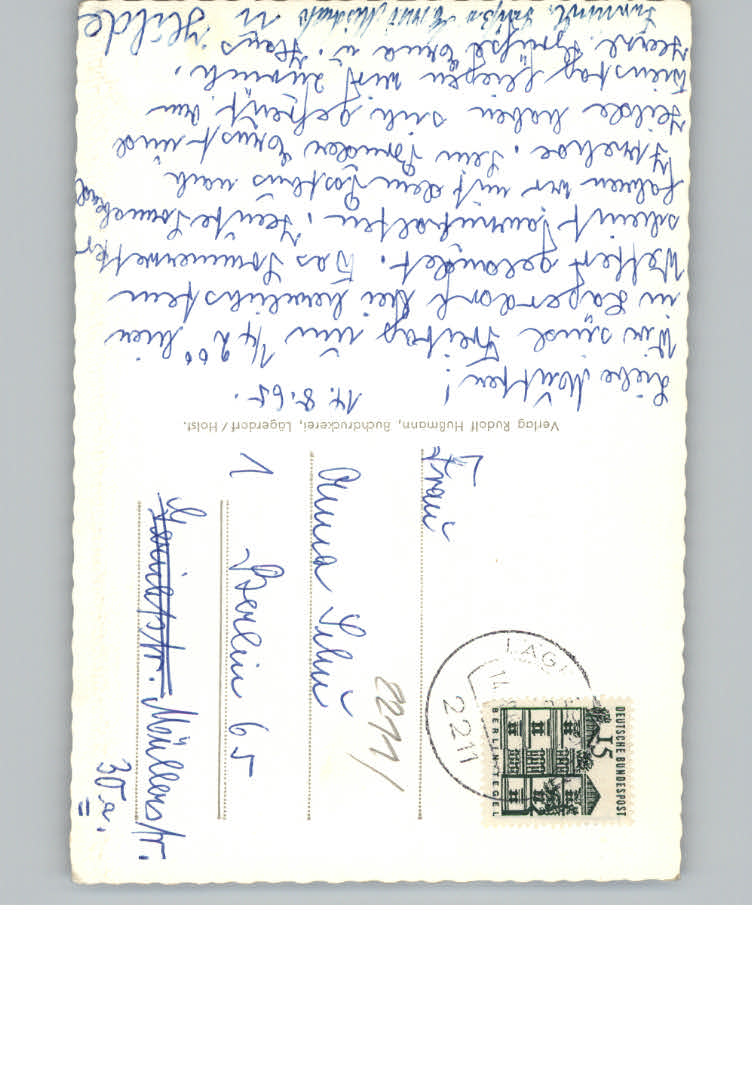 14.8.65.
Liebe Mutter!
Wir sind Freitag um 1/4 2 00 hier
in Lägerdorf bei herrlichstem
Wetter gelandet. Das Sommerwetter
scheint Heute Sonnabend
fahren wir mit dem Postbus nach
Itzehoe. Dein Bruder Ernst und
Hilde haben sich gefreut. Am
Dienstag fliegen wir zurück.
Herzl. Grüße Erna u. Hans
u Hilde
Verlag Rudolf Hußmann, Buchdruckerei, Lägerdorf / Holst.
Frau
Anna
1 Berlin 65
Müllerstr.
30a.
2211
2211 LÄG
14
DEUTSCHE BUNDESPOST
15
BERLIN-TEGEL